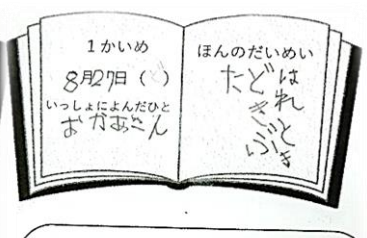 1かいめ
8月27日 ( )
いっしょによんだひと
おかあさん
ほんのだいめい
はれとき
どきぶ
た